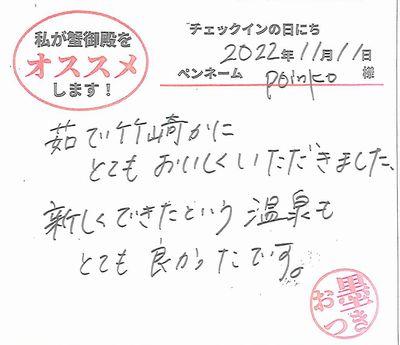 私が蟹御殿を
オススメ
します！
チェックインの日にち
2022年11月11日
ペンネーム poinko 様
茹で竹崎かに
とてもおいしくいただきました、
新しくできたという温泉も
とても良かったです。
お墨つき